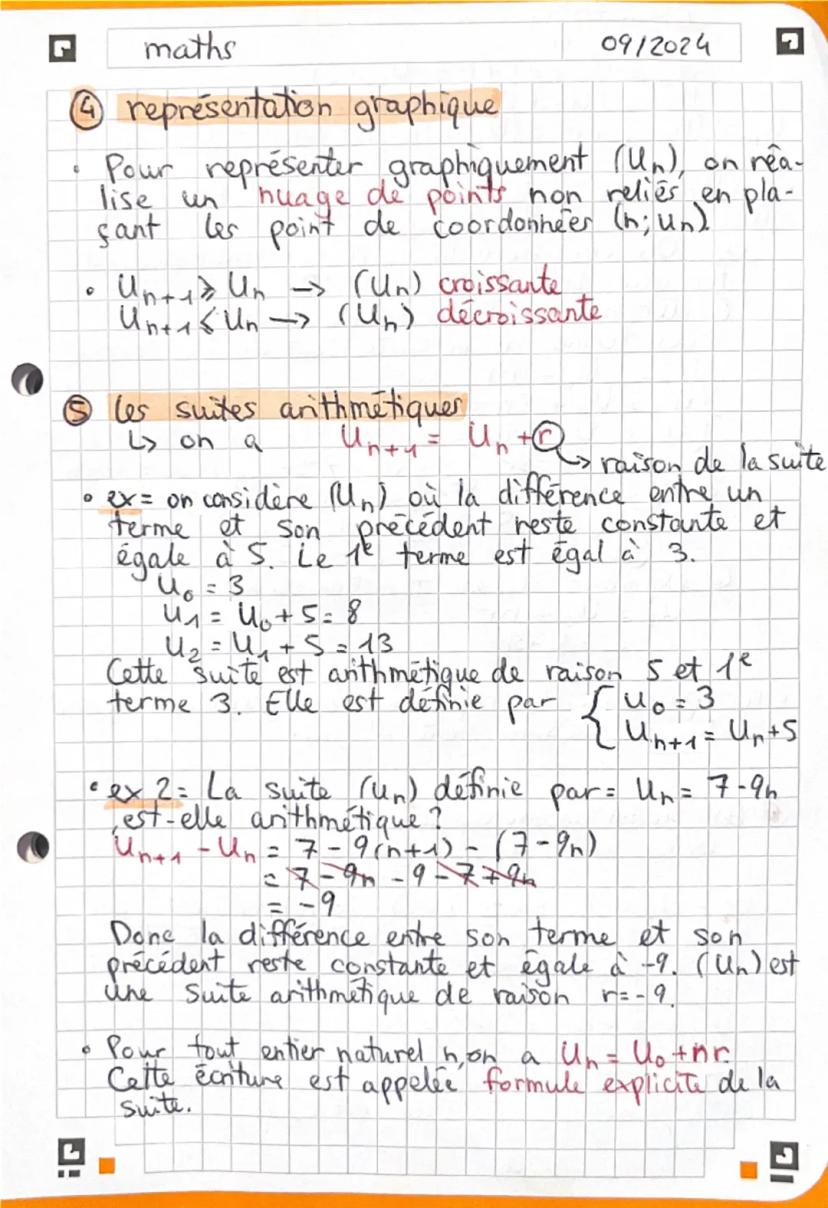 maths 09/2024
④ représentation graphique
• Pour représenter graphiquement (Un), on réa-
lise un nuage de points non reliés en pla-
çant les point de coordonnées (n; un).
• Un+1 ⩾ Un → (Un) croissante
Un+1 ⩽ Un → (Un) décroissante
⑤ les suites arithmétiques
↳ on a Un+1 = Un + r
↳ raison de la suite
• ex = on considère (Un) où la différence entre un
terme et son précédent reste constante et
égale à 5. Le 1e terme est égal à 3.
U0 = 3
U1 = U0 + 5 = 8
U2 = U1 + 5 = 13
Cette suite est arithmétique de raison 5 et 1e
terme 3. Elle est définie par { U0 = 3
Un+1 = Un + 5
• ex 2 = La suite (un) définie par = Un = 7 - 9n
est-elle arithmétique ?
Un+1 - Un = 7 - 9(n+1) - (7 - 9n)
= 7 - 9n - 9 - 7 + 9n
= -9
Donc la différence entre son terme et son
précédent reste constante et égale à -9. (Un) est
une suite arithmétique de raison r = -9.
• Pour tout entier naturel n, on a Un = U0 + nr.
Cette écriture est appelée formule explicite de la
suite.